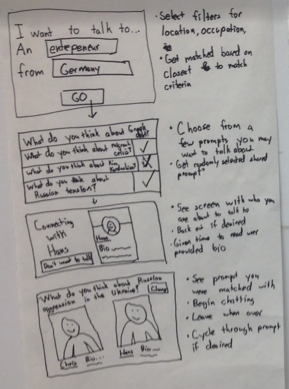 I want to talk to...
An entepeneur
from Germany
GO
• Select filters for
location, occupation,
• Get matched based on
closest to match
criteria
What do you think about
What do you think about
crisis?
What do you think about Kim
What do you think about
Russian tension?
• Choose from a
few prompts you may
want to talk about
• Get randomly selected shared
prompt
Connecting
with
Hans
Don't want to talk
Hans
Bio
• See screen with who you
are about to talk to
• Back out if desired
• Given time to read over
provided bio
What do you think about Russian
aggression in the Ukraine?
Change
Chris Bio...
Hans Bio...
• See prompt you
were matched with
• Begin chatting
• Leave when over
• Cycle through prompt
if desired